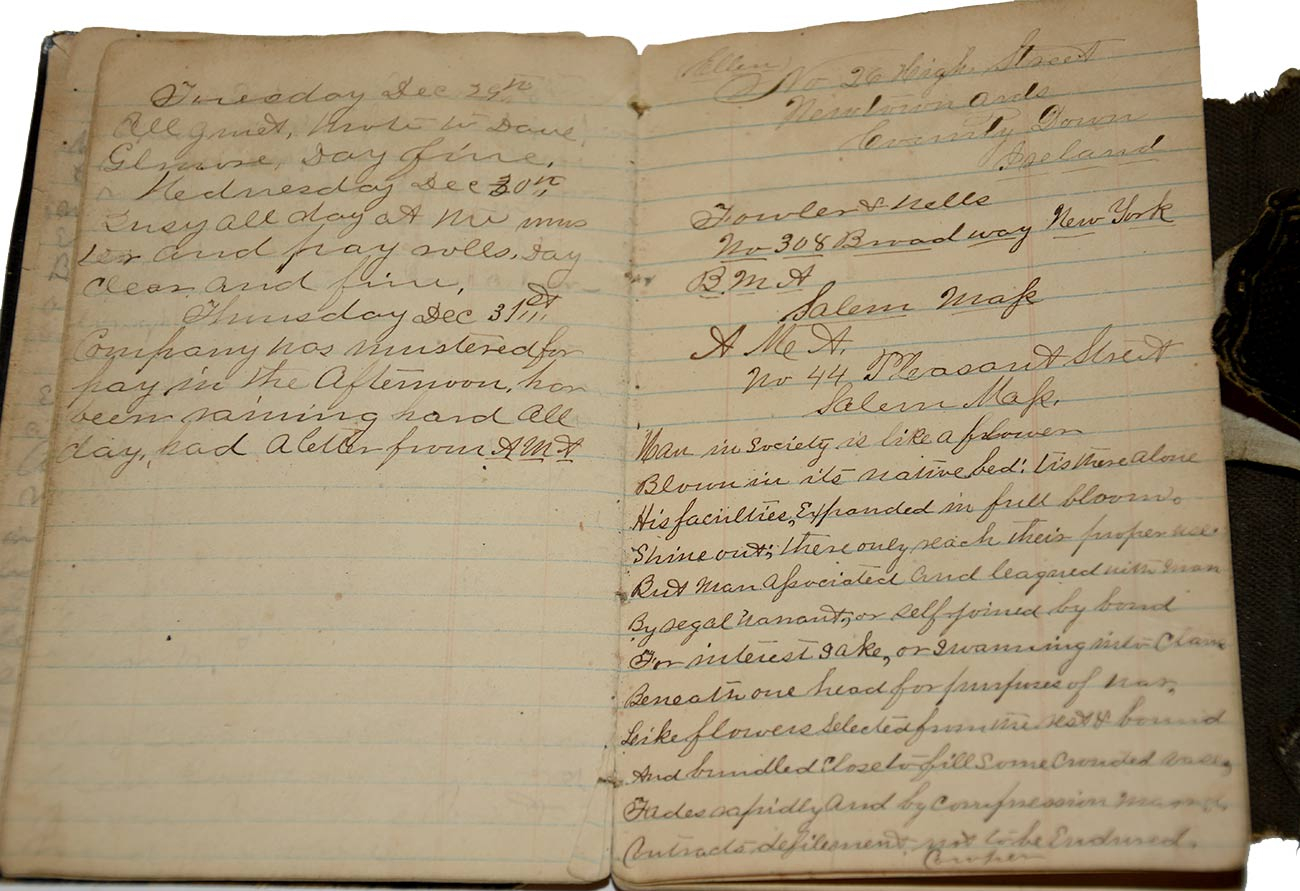 Tuesday Dec 29th
All quiet, wrote to Dave
Gilmore, Day fine,
Wednesday Dec 30th
Busy all day at the mus
ter and pay rolls. Day
clear and fine,
Thursday Dec 31st
Company was mustered for
pay in the Afternoon, has
been raining hard all
day, had a letter from A M A
(Ellen) No 26 High Street
Newtownards
County Down
Ireland
Fowler & Wells
No 308 Broadway New York
B. M A
Salem Mass
A M A.
No 44 Pleasant Street
Salem Mass.
Man in society is like a flower
Blown in its native bed: tis there alone
His faculties, Expanded in full bloom.
Shine out; there only reach their proper use.
But Man associated and leagued with man
By regal warrant, or self-joined by bond
For interest sake, or swarming into Clans
Beneath one head for purposes of war,
Like flowers selected from the rest & bound
And bundled close to fill some crowded vase,
Fades rapidly and by compression marred
Contracts defilement not to be Endured.
Cowper